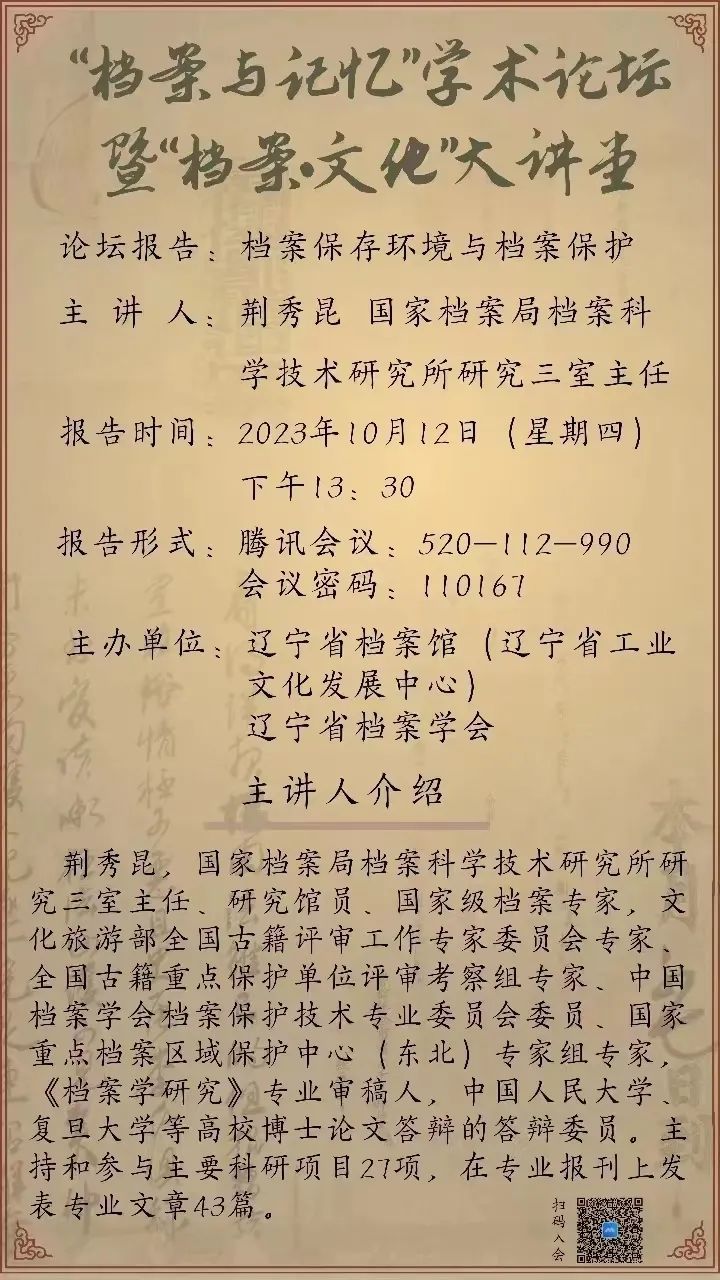 “档案与记忆”学术论坛
暨“档案·文化”大讲堂
论坛报告：档案保存环境与档案保护
主 讲 人：荆秀昆 国家档案局档案科
学技术研究所研究三室主任
报告时间：2023年10月12日（星期四）
下午13：30
报告形式：腾讯会议：520-112-990
会议密码：110167
主办单位：辽宁省档案馆（辽宁省工业
文化发展中心）
辽宁省档案学会
主讲人介绍
荆秀昆，国家档案局档案科学技术研究所研
究三室主任、研究馆员、国家级档案专家，文
化旅游部全国古籍评审工作专家委员会专家、
全国古籍重点保护单位评审考察组专家、中国
档案学会档案保护技术专业委员会委员、国家
重点档案区域保护中心（东北）专家组专家，
《档案学研究》专业审稿人，中国人民大学、
复旦大学等高校博士论文答辩的答辩委员。主
持和参与主要科研项目27项，在专业报刊上发
表专业文章43篇。
扫码入会